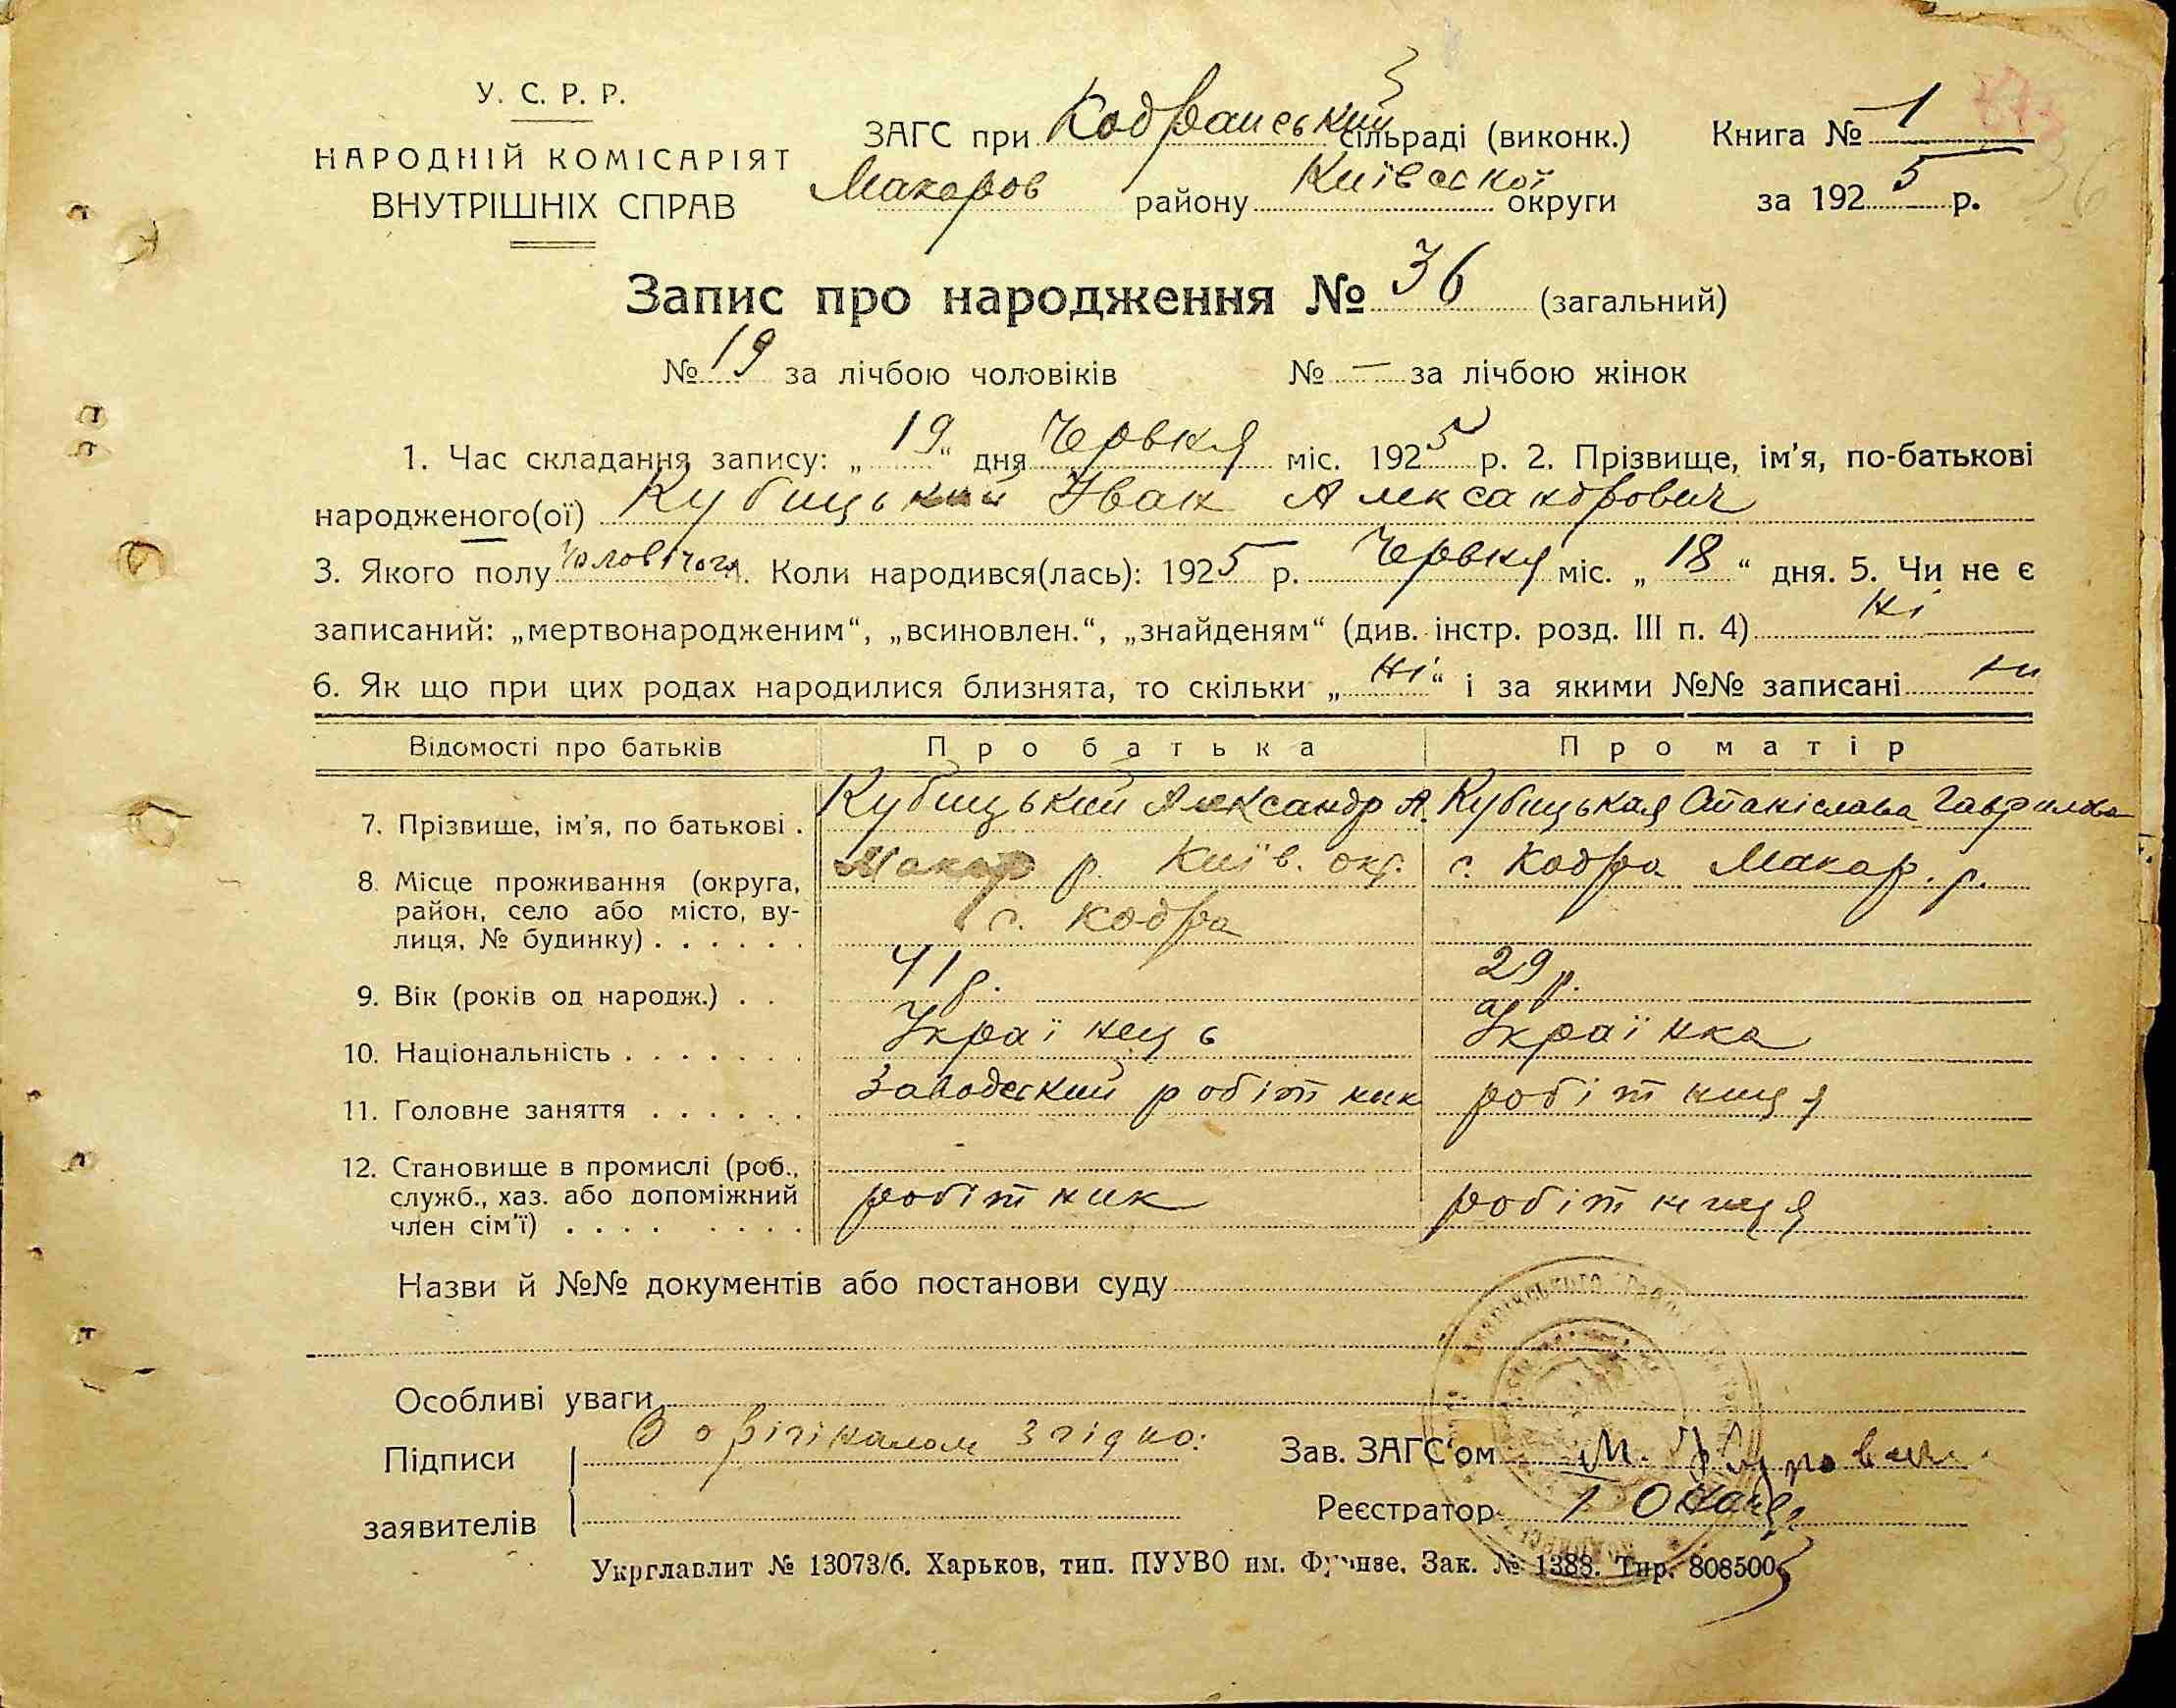 У. С. Р. Р.
НАРОДНІЙ КОМІСАРІЯТ
ВНУТРІШНІХ СПРАВ
ЗАГС при Кодранський сільраді (виконк.)
Макаров району Київської округи
Книга № 1
за 1925 р.
36
Запис про народження № 36 (загальний)
№ 19 за лічбою чоловіків № — за лічбою жінок
1. Час складання запису: „19“ дня Червня міс. 1925 р. 2. Прізвище, ім'я, по-батькові
народженого(ої) Кубицький Іван Александрович
3. Якого полу Чоловічого. Коли народився(лась): 1925 р. Червня міс. „18“ дня. 5. Чи не є
записаний: „мертвонародженим“, „всиновлен.“, „знайденям“ (див. інстр. розд. III п. 4) ні
6. Як що при цих родах народилися близнята, то скільки „ні“ і за якими №№ записані ни
Відомості про батьків Про батька Про матір
7. Прізвище, ім'я, по батькові . Кубицький Александр А. Кубицькая Станіслава Гаврилова
8. Місце проживання (округа, Макар р. Київ. окр. с. Кодра Макар. р.
район, село або місто, ву- с. Кодра
лиця, № будинку) . . . . . .
9. Вік (років од народж.) . . 41 р. 29 р.
10. Національність . . . . . . . Українець Українка
11. Головне заняття . . . . . . Заводский робітник робітниця
12. Становище в промислі (роб.,
служб., хаз. або допоміжний робітник робітниця
член сім'ї) . . . . . . . .
Назви й №№ документів або постанови суду
Особливі уваги
Підписи З орігіналом згідно:
заявителів
Зав. ЗАГС'ом М.
Реєстратор
Укрглавлит № 13073/б. Харьков, тип. ПУУВО им. Фрунзе. Зак. № 1388. Тир. 808500